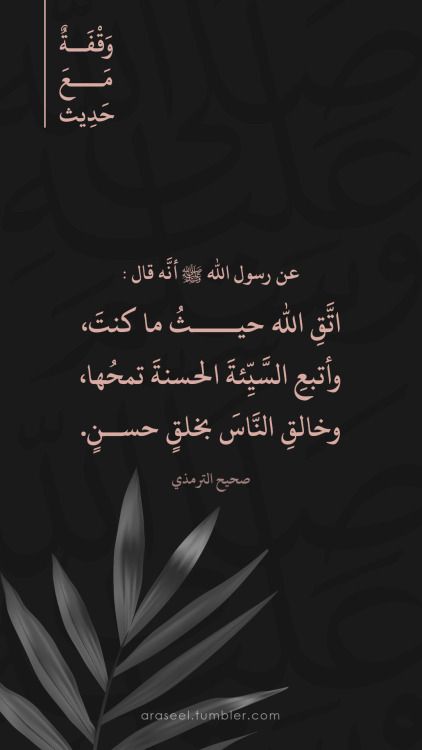 وَقْفَـــةٌ
مَـــــعَ
حَدِيث
عن رسول الله ﷺ أنَّه قال :
اتَّقِ الله حيـــــــثُ ما كنتَ،
وأتبعِ السَّيِّئةَ الحسنةَ تمحُها،
وخالقِ النَّاسَ بخلقٍ حســـنٍ.
صحيح الترمذي
araseel.tumbler.com